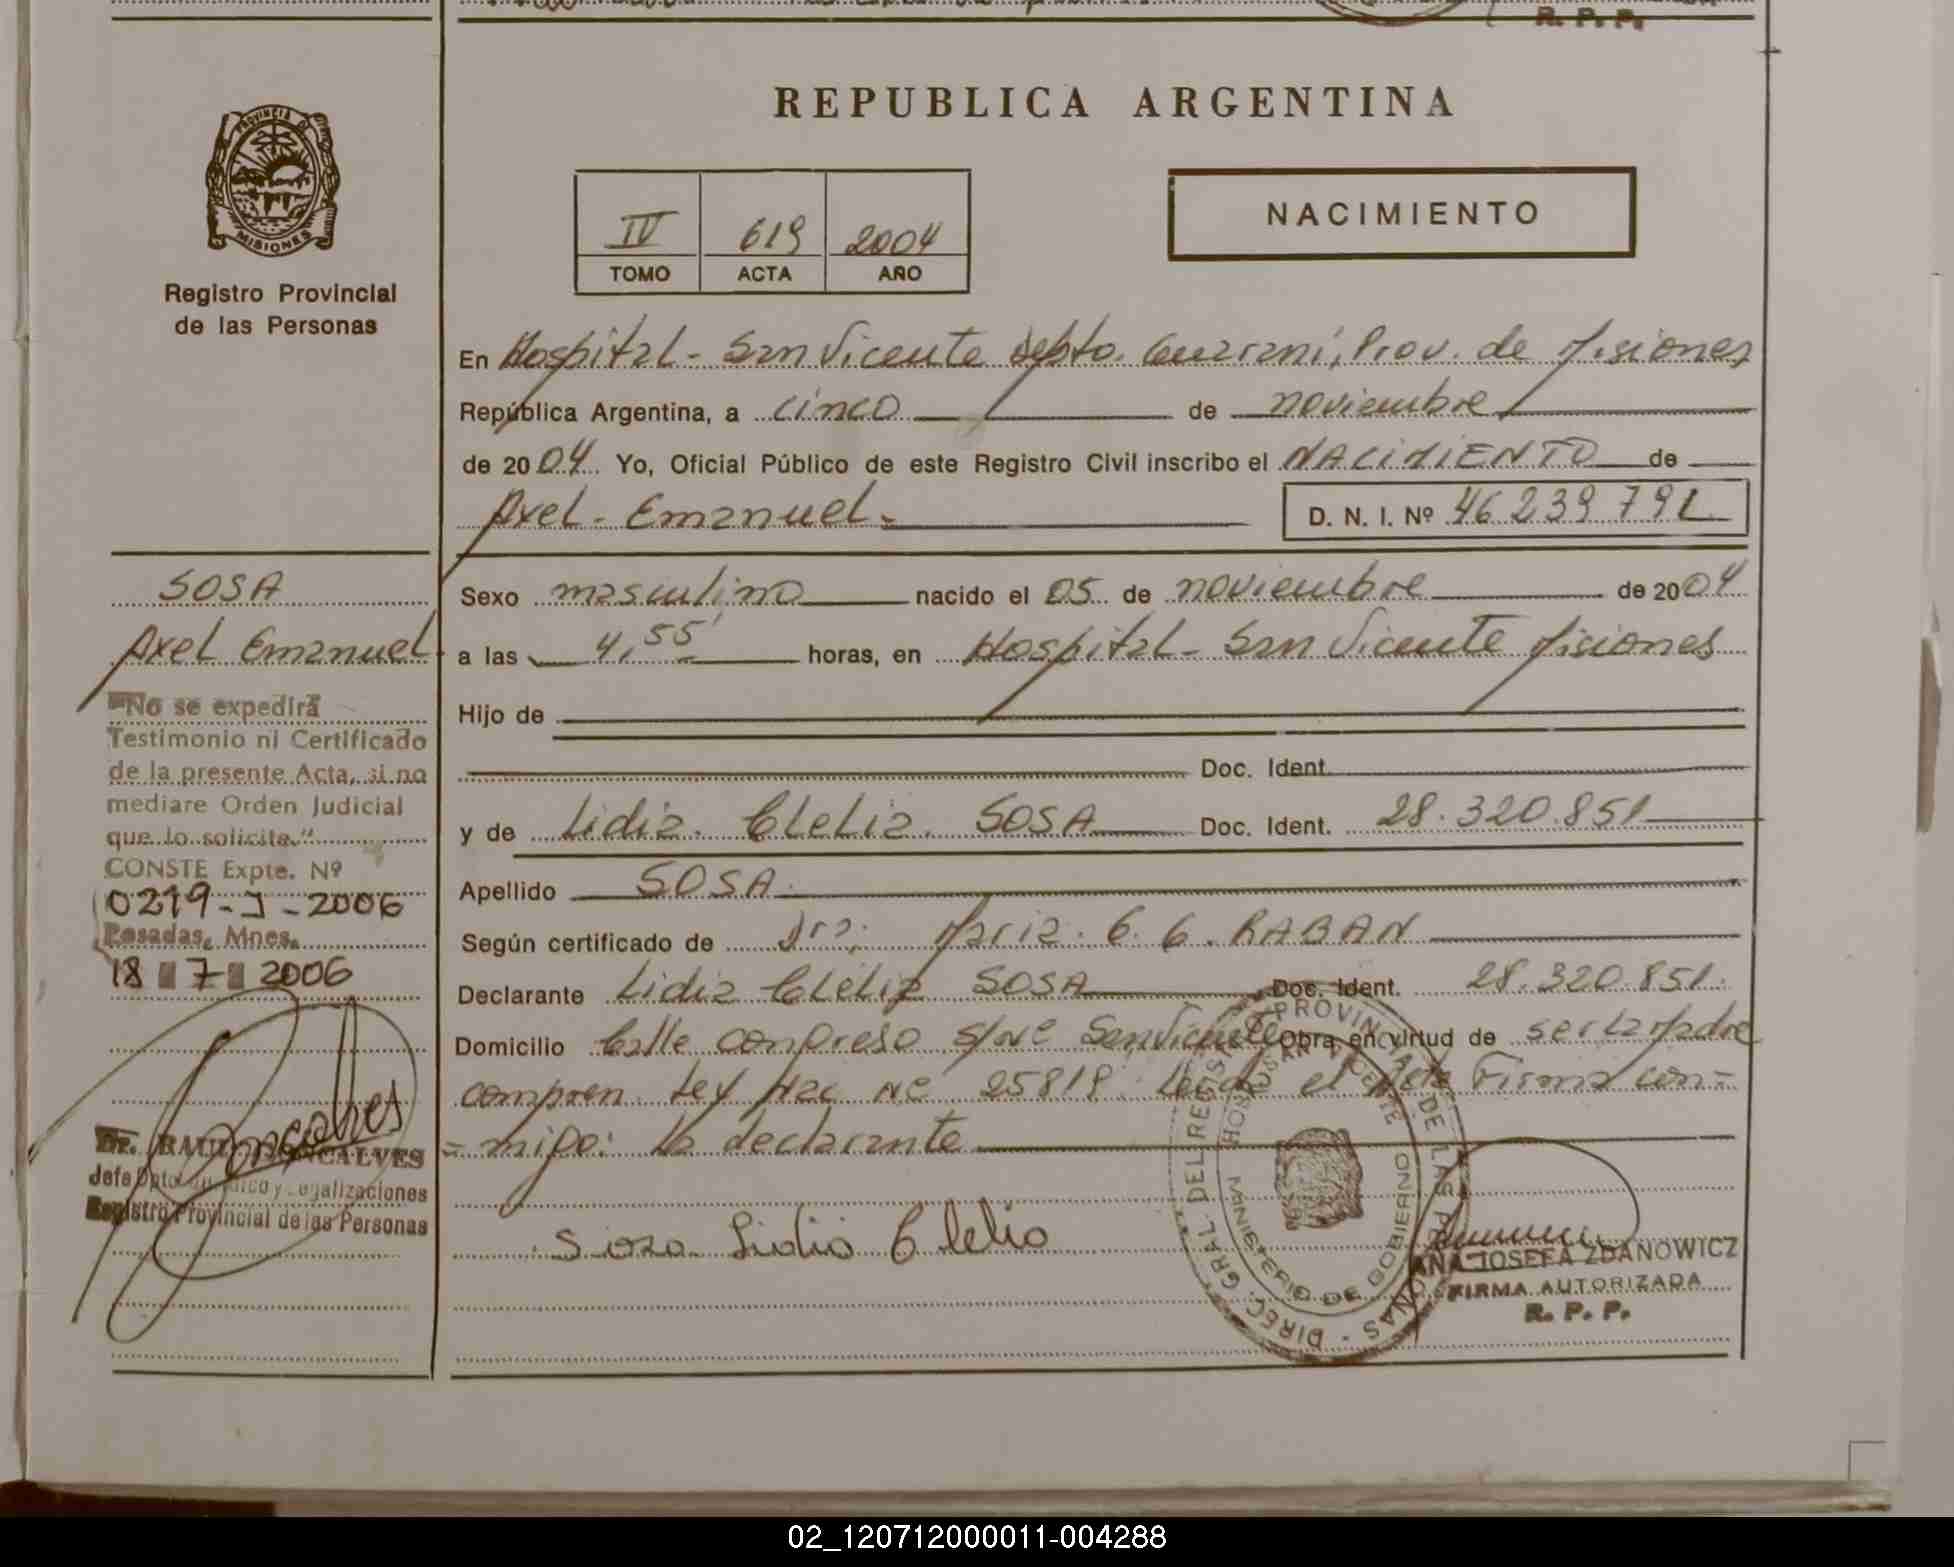 R. P. P.
REPUBLICA ARGENTINA
PROVINCIA DE
MISIONES
Registro Provincial
de las Personas
IV 619 2004
TOMO ACTA AÑO
NACIMIENTO
En Hospital - San Vicente Depto. Guaraní, Prov. de Misiones
República Argentina, a cinco de noviembre
de 2004 Yo, Oficial Público de este Registro Civil inscribo el NACIMIENTO de
Axel - Emanuel.
D. N. I. Nº 46 239 791
SOSA
Axel Emanuel
"No se expedirá
Testimonio ni Certificado
de la presente Acta, si no
mediare Orden Judicial
que lo solicite."
CONSTE Expte. Nº
0219-J-2006
Posadas, Mnes.
18 7 2006
Goncalves
Dr. RAUL GONCALVES
Jefe Dpto Jurídico y Legalizaciones
Registro Provincial de las Personas
Sexo masculino nacido el 05 de noviembre de 2004
a las 4,55 horas, en Hospital - San Vicente Misiones
Hijo de
Doc. Ident.
y de Lidia Clelia SOSA Doc. Ident. 28.320.851
Apellido SOSA
Según certificado de Dra; Maria G. G. RABAN
Declarante Lidia Clelia SOSA Doc. Ident. 28.320.851.
Domicilio Calle Congreso s/Nº San Vicente Obra en virtud de ser la Madre
compren Ley Nac Nº 25819. Leída el Acta Firma con-
- migo: la declarante
Sosa Lidia Clelia
DIREC. GRAL. DEL REGISTRO PROVINCIAL DE LAS PERSONAS
HOSP. SAN VICENTE
MINISTERIO DE GOBIERNO
ANA JOSEFA ZDANOWICZ
FIRMA AUTORIZADA
R. P. P.
02_120712000011-004288